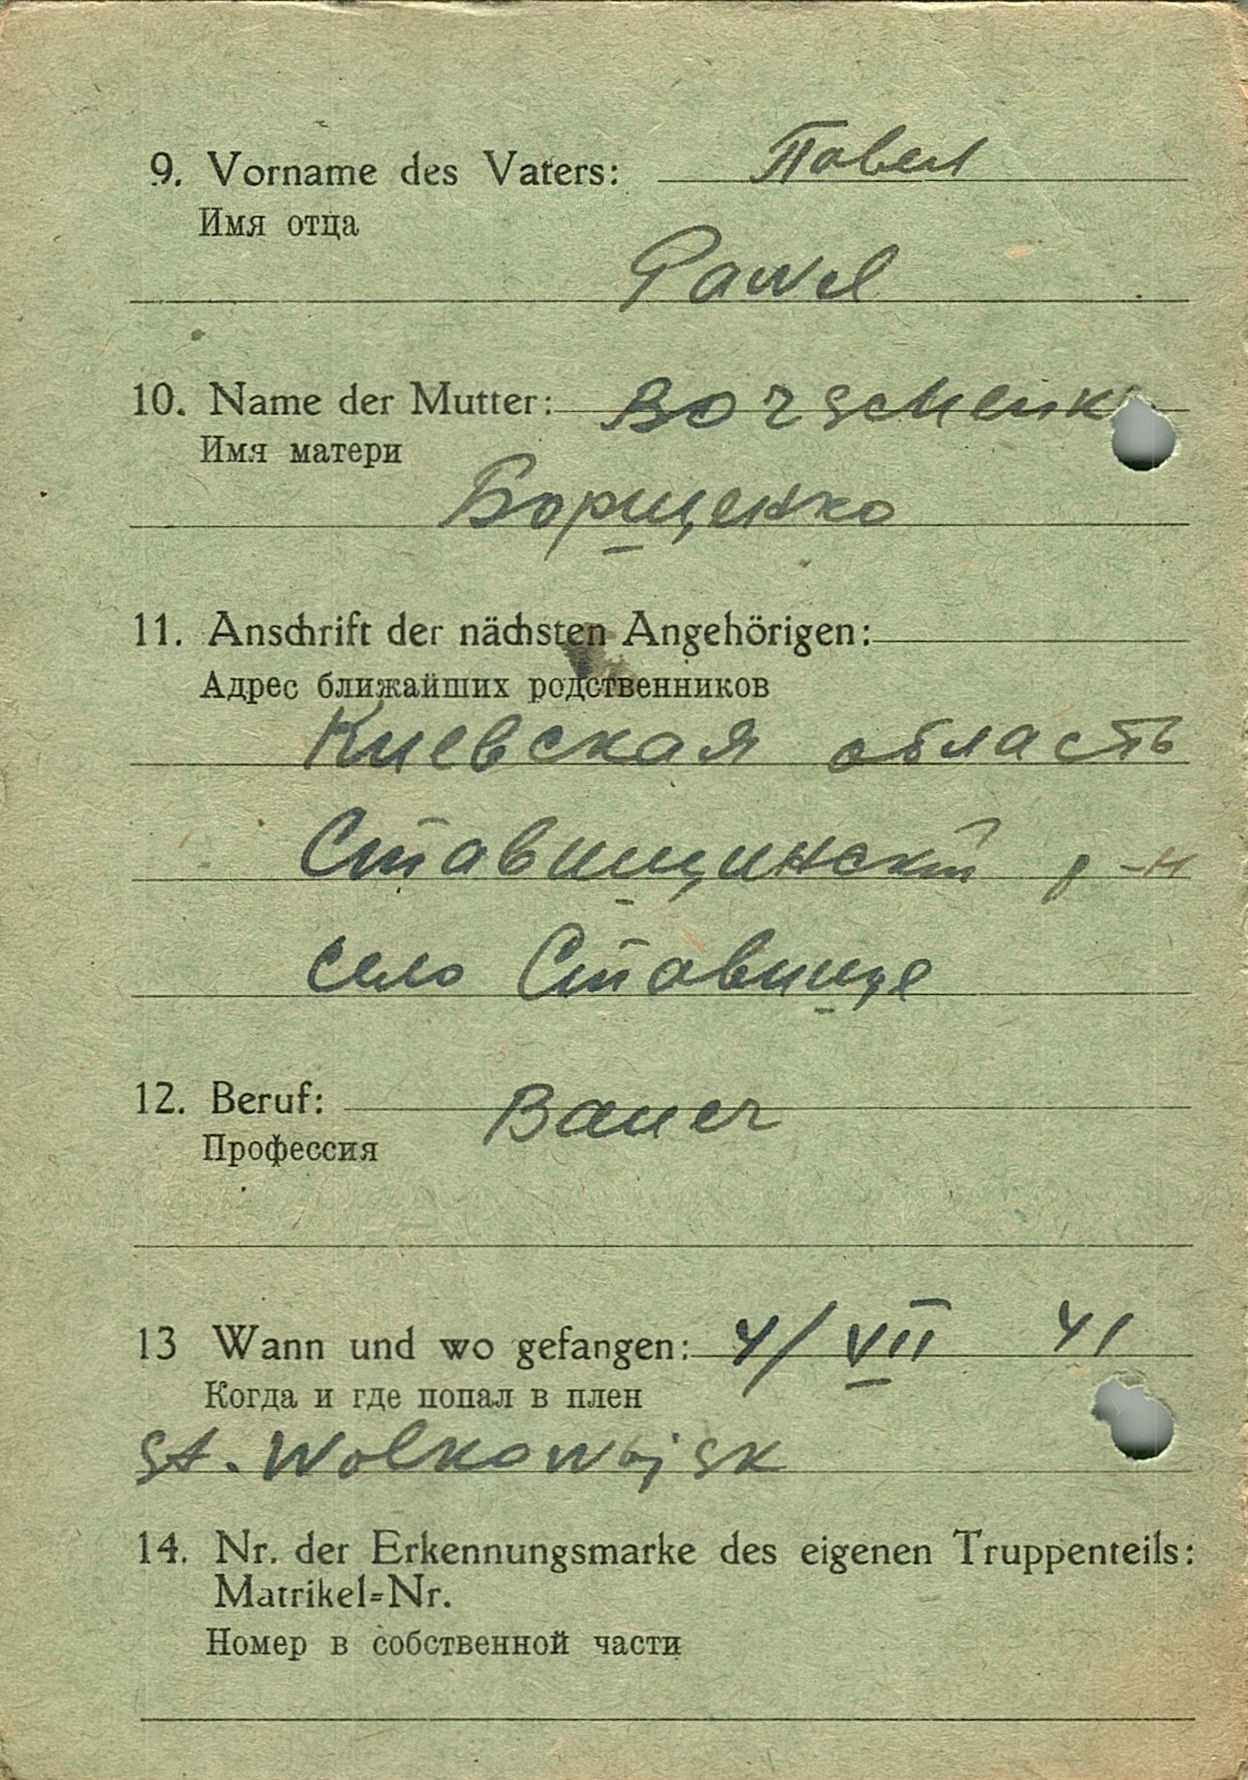 9. Vorname des Vaters: Павел
Имя отца
Pawel
10. Name der Mutter: Borschenk
Имя матери
Борщенко
11. Anschrift der nächsten Angehörigen:
Адрес ближайших родственников
Киевская область
Ставищинский р-н
село Ставище
12. Beruf: Bauer
Профессия
13 Wann und wo gefangen: 4/VII 41
Когда и где попал в плен
St. Wolkowijsk
14. Nr. der Erkennungsmarke des eigenen Truppenteils:
Matrikel=Nr.
Номер в собственной части